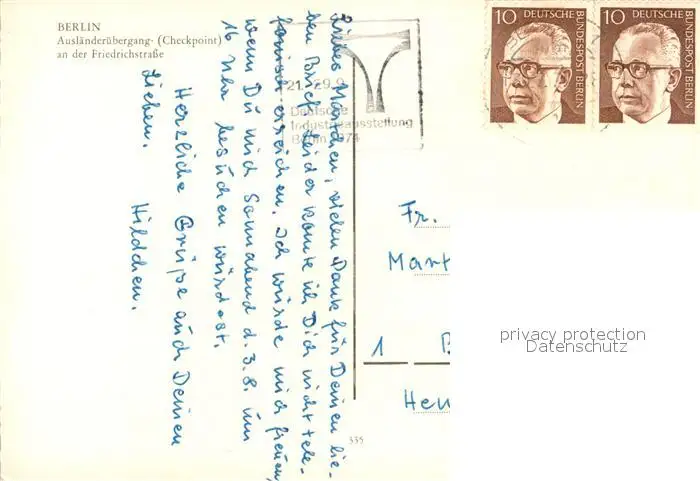 BERLIN
Ausländerübergang- (Checkpoint)
an der Friedrichstraße
10 DEUTSCHE BUNDESPOST BERLIN
10 DEUTSCHE BUNDESPOST BERLIN
21.-29.9.
Deutsche
Industrieausstellung
Berlin 1974
Liebes Mardchen, vielen Dank für Deinen lie-
ben Brief. Leider konnte ich Dich nicht tele-
fonisch erreichen. Ich würde mich freuen,
wenn Du mich Sonnabend d. 3.8. um
16 Uhr besuchen würdest.
Herzliche Grüße auch Deinen
Lieben.
Hildchen.
Fr.
Mart
1 B
Hen
335
privacy protection
Datenschutz